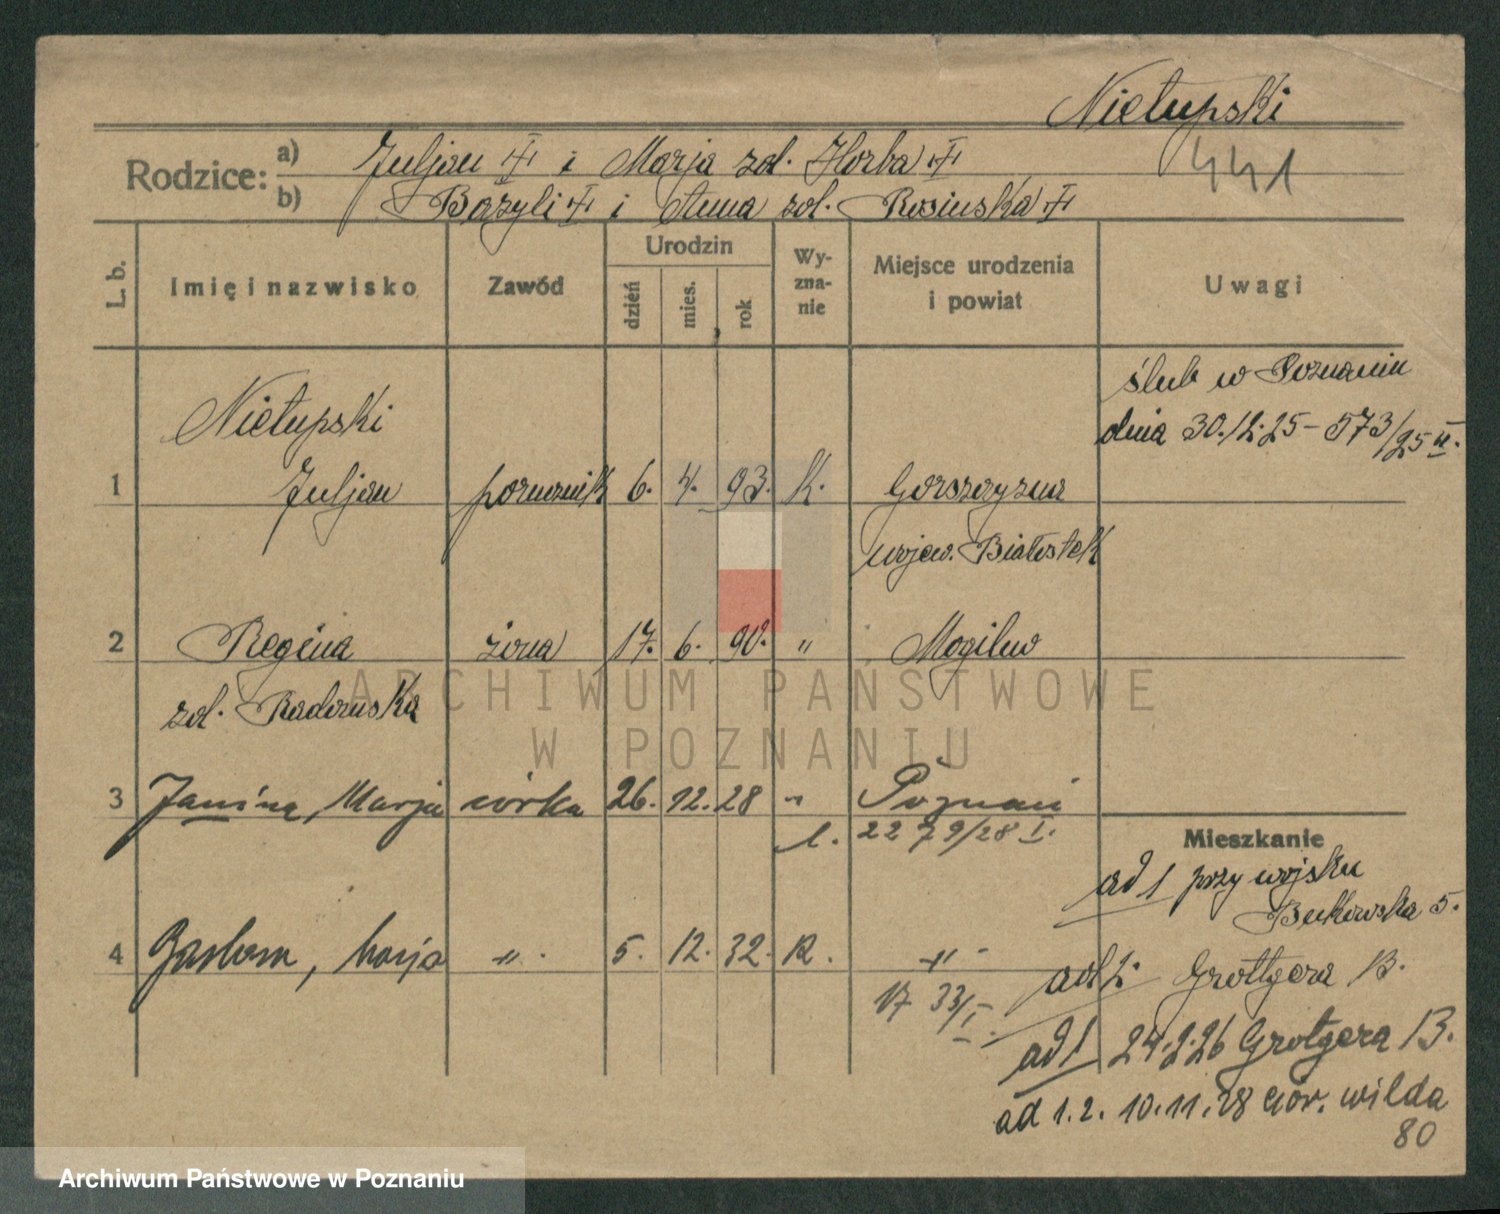 Nietupski
441
Rodzice: a) Juljan i Marja zol. Horba
b) Bazyli i Anna zol. Rosinska
L. b. Imię i nazwisko Zawód Urodzin dzień mies. rok Wy-zna-nie Miejsce urodzenia i powiat Uwagi
ślub w Poznaniu
dnia 30.12.25 - 573/25 II.
Nietupski
1 Juljan porucznik 6. 4. 93. K.
wojew. Białostok
2 Regina żona 17. 6. 90. " Mogilew
zol. Radomska
3 Janina, Marja córka 26. 12. 28 " Poznań
l. 2279/28 I.
Mieszkanie
ad 1 przy wojsku
Bukowska 5.
4 Marja " 5. 12. 32. R. "
17 33/I.
Grottgera 13.
ad 1 24.2.26 Grotgera 13.
ad 1.2. 10.11.28 Gór. wilda
80
ARCHIWUM PAŃSTWOWE
W POZNANIU
Archiwum Państwowe w Poznaniu